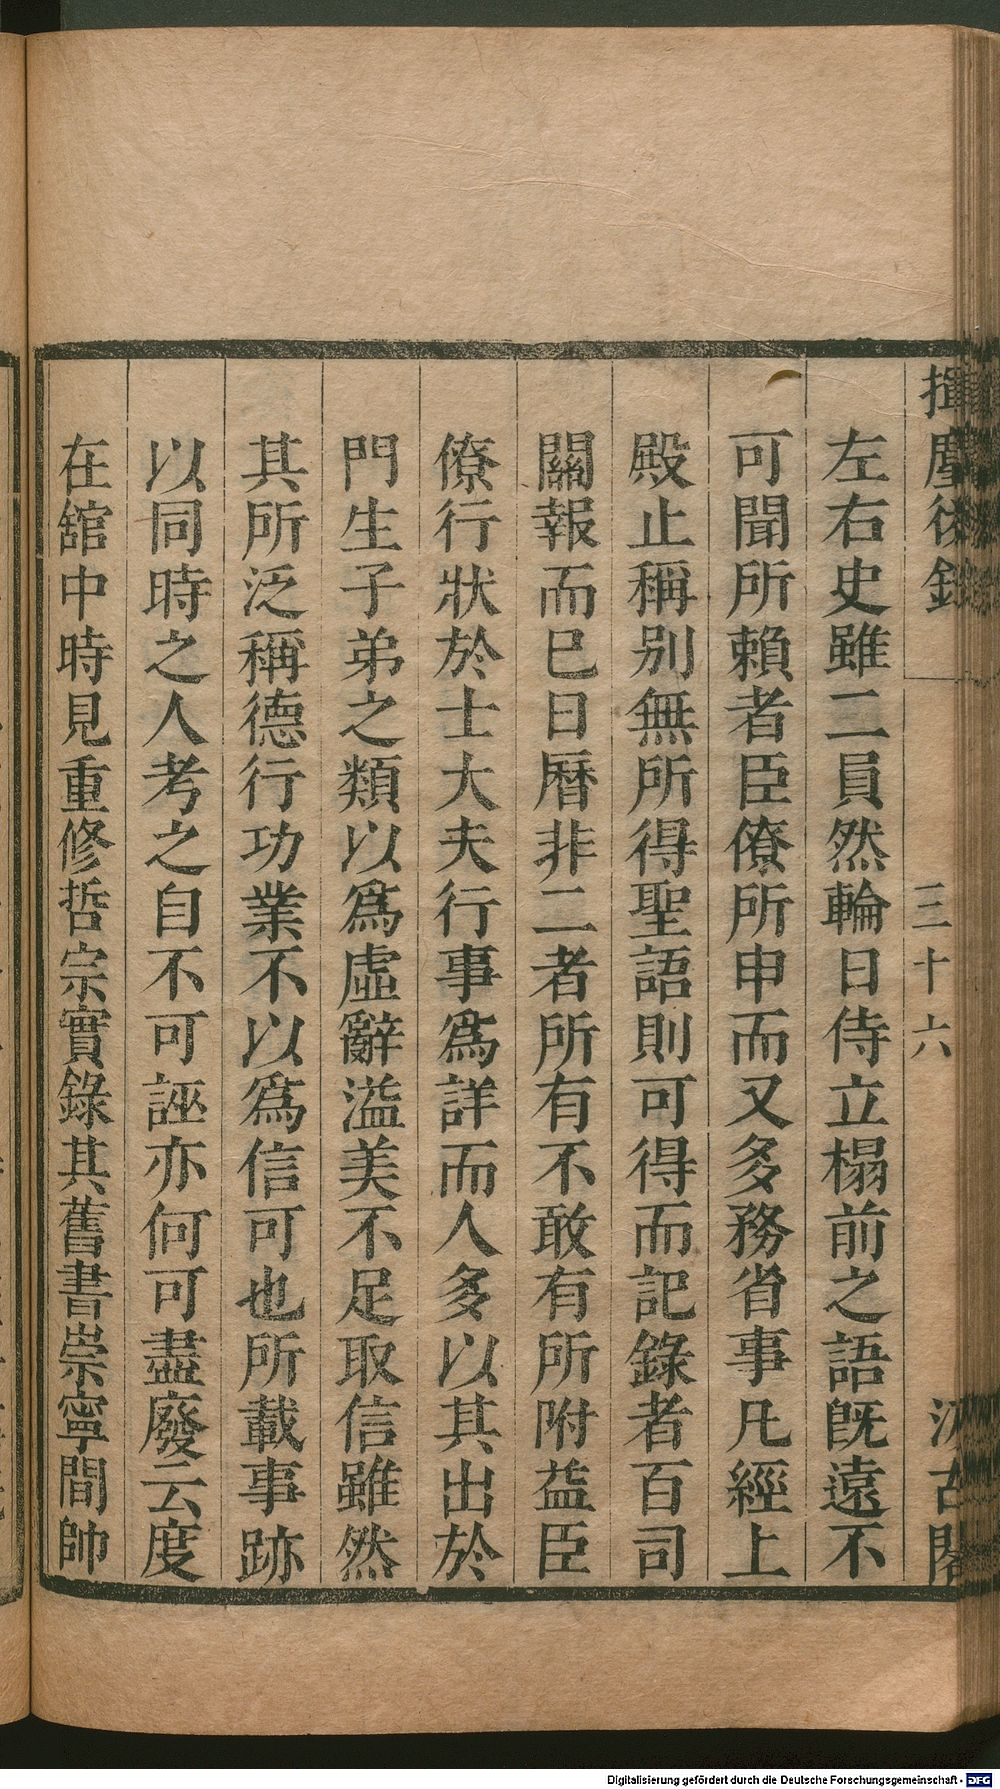 揮麈後錄
三十六
汲古閣
左右史雖二員然輪日侍立榻前之語旣遠不
可聞所賴者臣僚所申而又多務省事凡經上
殿止稱別無所得聖語則可得而記錄者百司
關報而已日曆非二者所有不敢有所附益臣
僚行狀於士大夫行事爲詳而人多以其出於
門生子弟之類以爲虛辭溢美不足取信雖然
其所泛稱德行功業不以爲信可也所載事跡
以同時之人考之自不可誣亦何可盡廢云度
在舘中時見重修哲宗實錄其舊書崇寧間帥
Digitalisierung gefördert durch die Deutsche Forschungsgemeinschaft - DFG